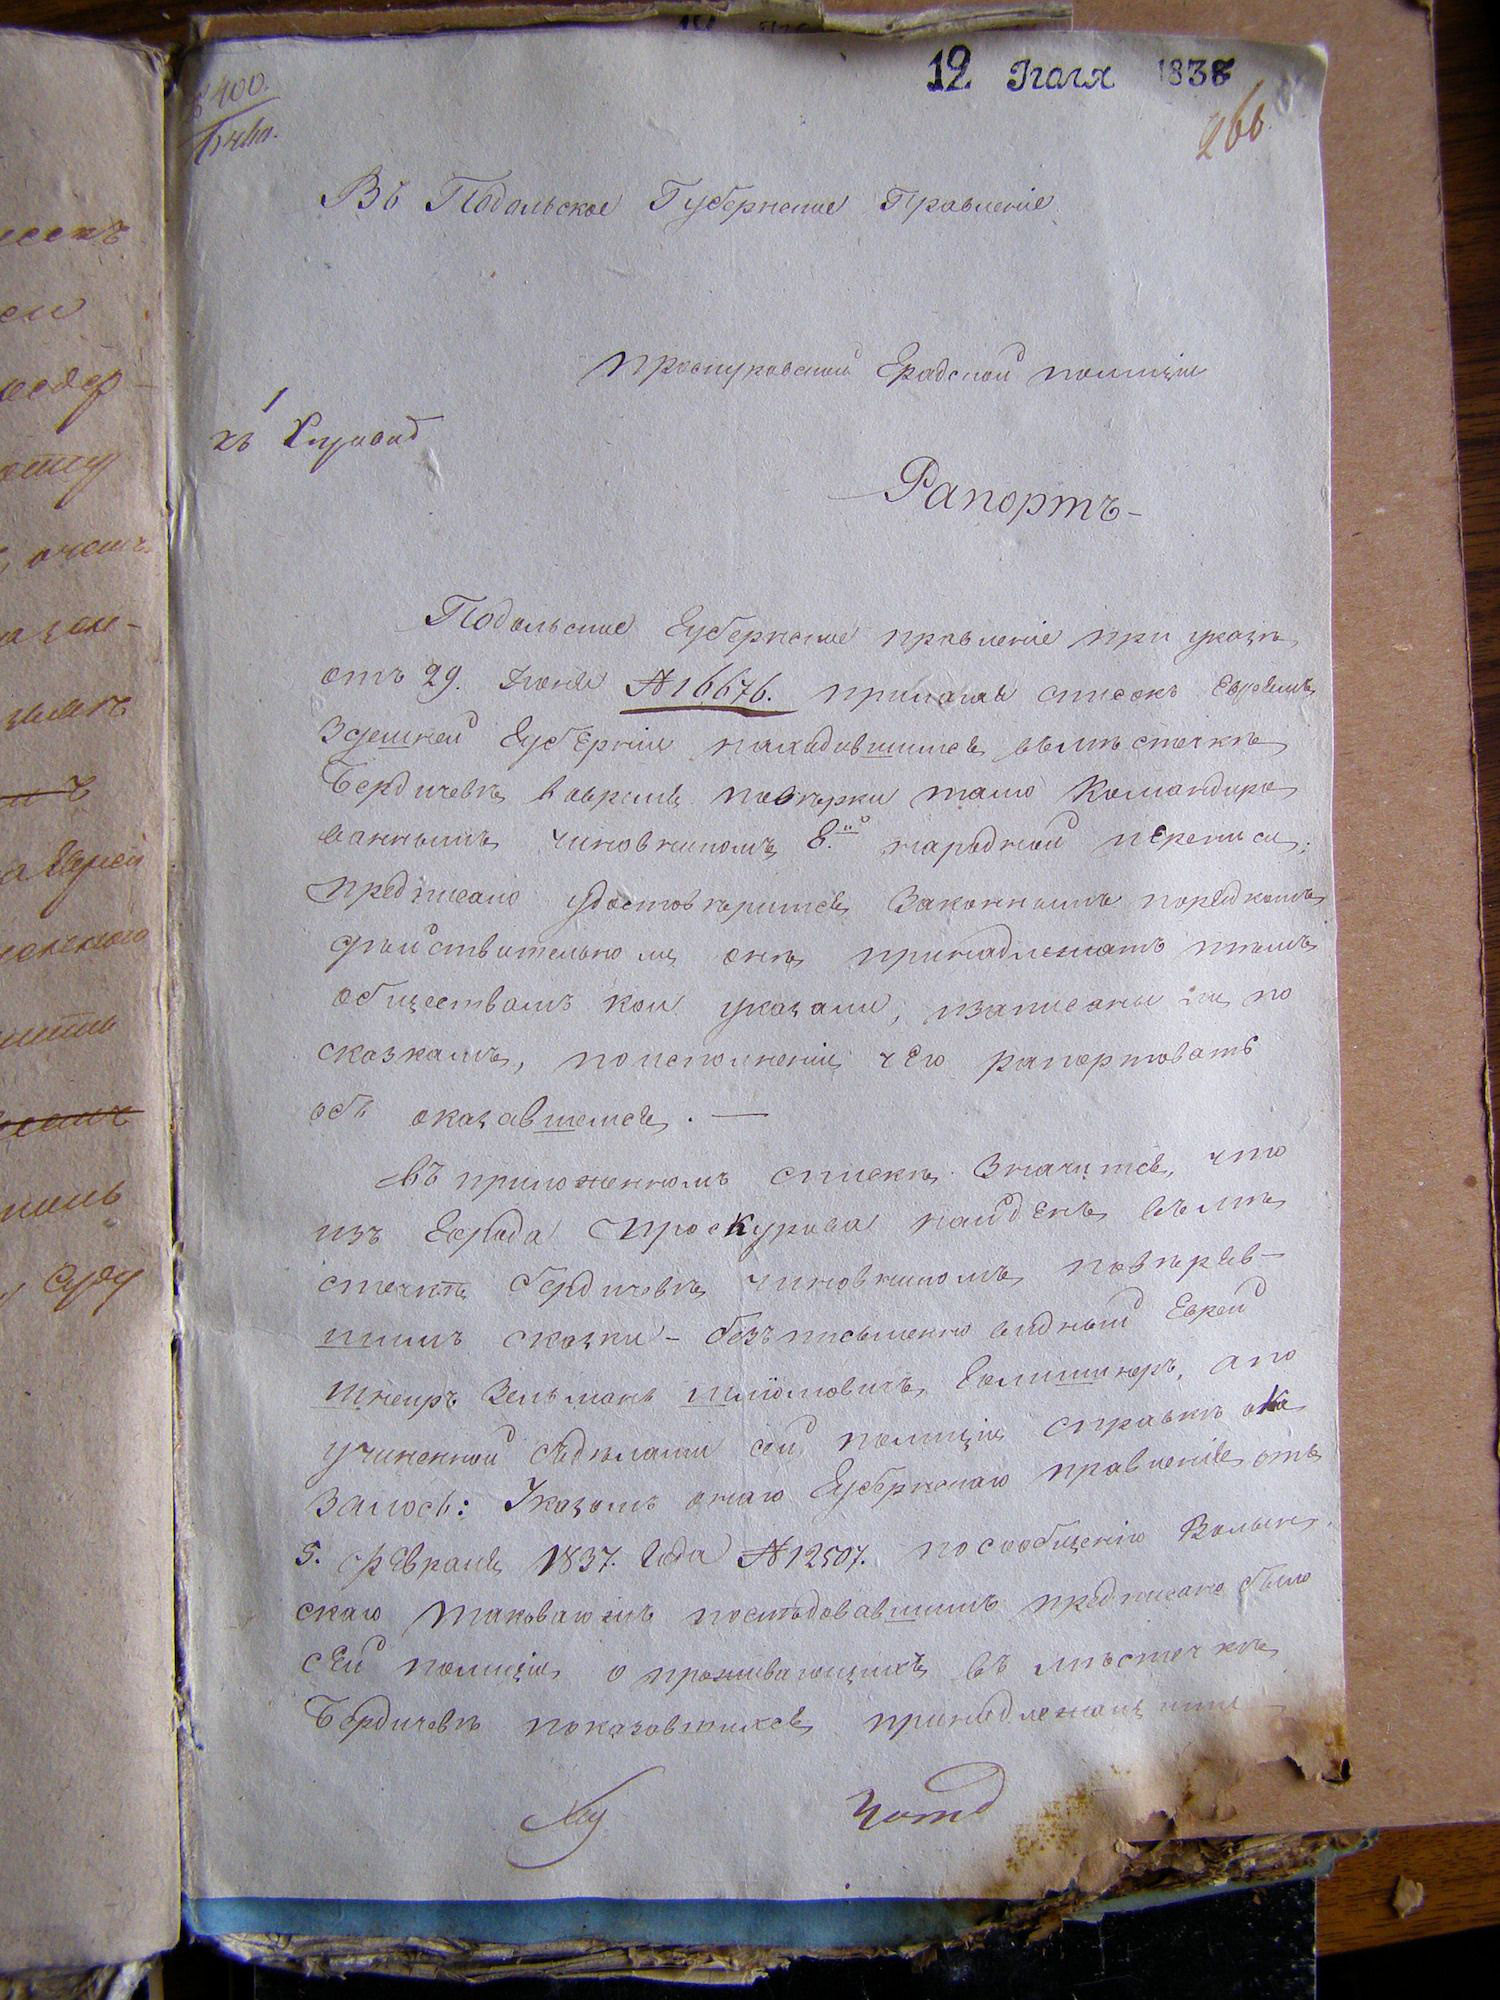 12 Июля 1838
266
400.
Въ Подольское Губернское Правленіе
Проскуровской Градской полиціи
къ
Рапортъ
Подольское Губернское правленіе при указѣ
отъ 29. Іюня №16676. прилагая списокъ Евреямъ
Здешней Губерніи находившимся вместечкѣ
Бердичевѣ вовремя поверки тамо Командиро
ваннымъ чиновникомъ 8.й народной переписи,
предписало удостоверится Законнымъ порядкомъ
действительно ли онѣ принадлежатъ тѣмъ
обществамъ кои указали, изаписаны ли по
сказкамъ, поисполненіи чего рапортовать
объ оказавшемся. —
Въ приложенномъ спискѣ Значится, что
изъ Города Проскурова найденъ въмѣ
стечкѣ Бердичевѣ чиновникомъ поверяв-
шимъ сказки – безъписьменно видный Еврей
Шнеиръ Зельманъ Шліомовичъ, апо
учиненной съделами сей полиціи справкѣ ока
залось: Указомъ онаго Губернскаго правленія отъ
5. февраля 1837. Года №12507. посообщенію Волын
скаго таковаго жъ последовавшимъ предписано было
сей полиціи о проживающихъ въ местечкѣ
Бердичевѣ показавшихся принадлежащими